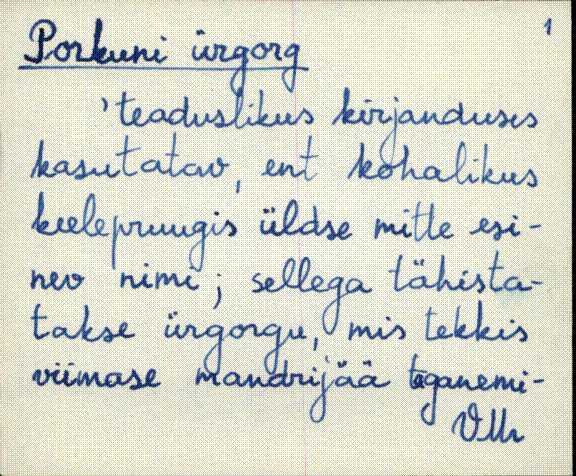 1
Porkuni ürgorg
'teaduslikus kirjanduses
kasutatav, ent kohalikus
keelepruugis üldse mitte esi-
nev nimi; sellega tähista-
takse ürgorgu, mis tekkis
viimase mandrijää taganemi-
V.Mr